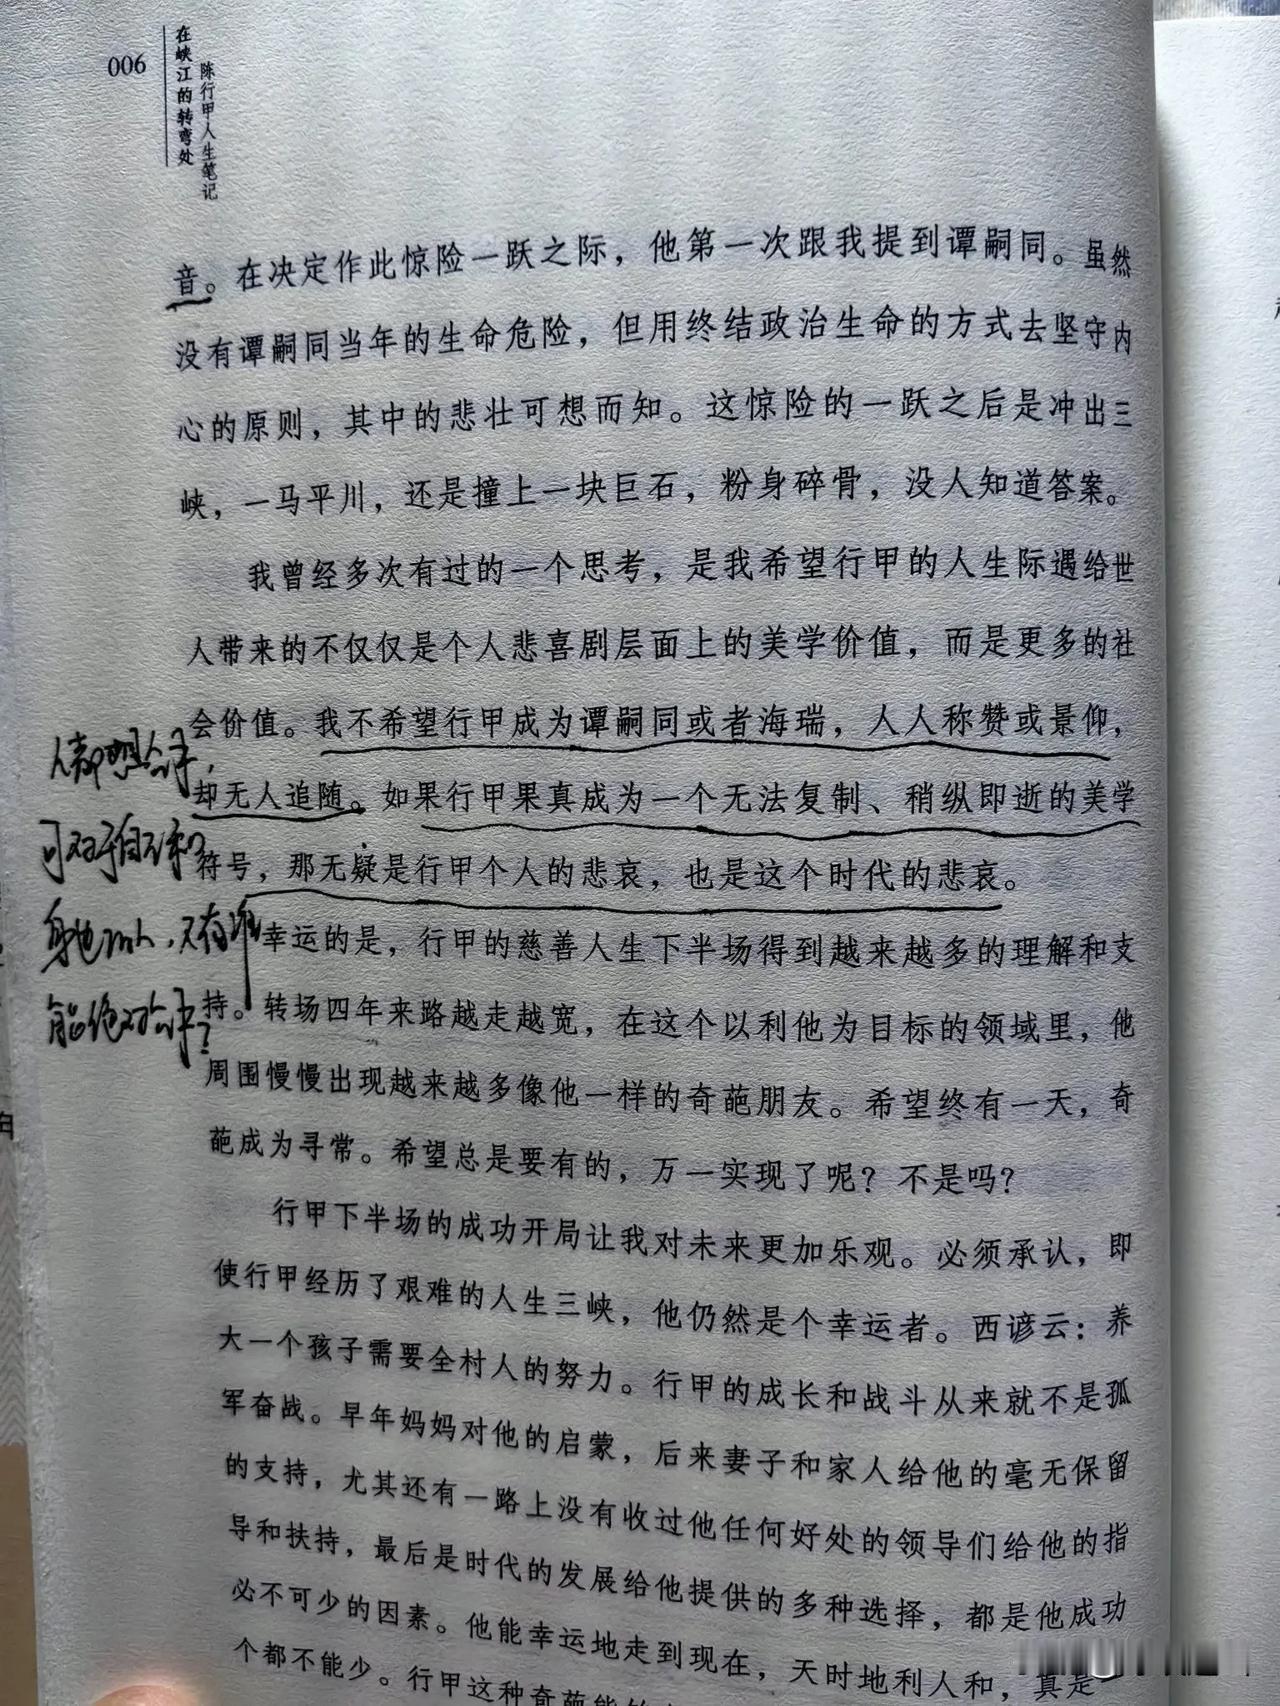 006
在峡江的转弯处
陈行甲人生笔记
音。在决定作此惊险一跃之际，他第一次跟我提到谭嗣同。虽然
没有谭嗣同当年的生命危险，但用终结政治生命的方式去坚守内
心的原则，其中的悲壮可想而知。这惊险的一跃之后是冲出三
峡，一马平川，还是撞上一块巨石，粉身碎骨，没人知道答案。
我曾经多次有过的一个思考，是我希望行甲的人生际遇给世
人带来的不仅仅是个人悲喜剧层面上的美学价值，而是更多的社
会价值。我不希望行甲成为谭嗣同或者海瑞，人人称赞或景仰，
却无人追随。如果行甲果真成为一个无法复制、稍纵即逝的美学
符号，那无疑是行甲个人的悲哀，也是这个时代的悲哀。
幸运的是，行甲的慈善人生下半场得到越来越多的理解和支
持。转场四年来路越走越宽，在这个以利他为目标的领域里，他
周围慢慢出现越来越多像他一样的奇葩朋友。希望终有一天，奇
葩成为寻常。希望总是要有的，万一实现了呢？不是吗？
行甲下半场的成功开局让我对未来更加乐观。必须承认，即
使行甲经历了艰难的人生三峡，他仍然是个幸运者。西谚云：养
大一个孩子需要全村人的努力。行甲的成长和战斗从来就不是孤
军奋战。早年妈妈对他的启蒙，后来妻子和家人给他的毫无保留
的支持，尤其还有一路上没有收过他任何好处的领导们给他的指
导和扶持，最后是时代的发展给他提供的多种选择，都是他成功
必不可少的因素。他能幸运地走到现在，天时地利人和，真是一
个都不能少。行甲这种奇葩能
人都想公平，
可对于自己和
身边的人，又有谁
能绝对公平？